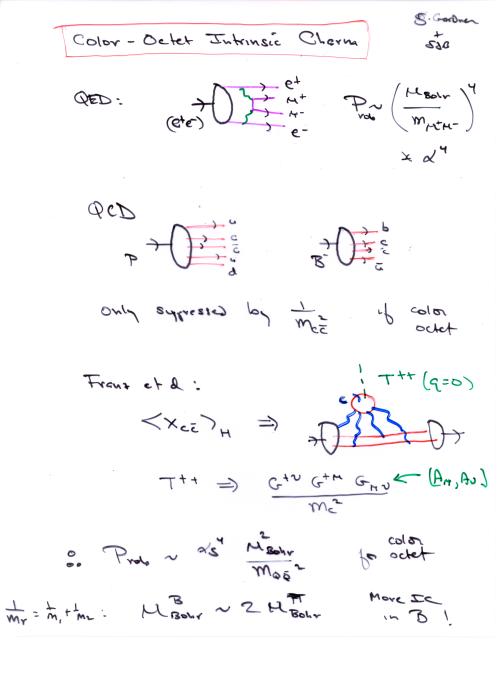 S. Gardner
+
SJB
Color-Octet Intrinsic Charm
QED:
(e+e-)
e+
μ+
μ-
e-
Prob ~ (μBohr / mμ+μ-)^4
× α^4
QCD
P
u
c
c̄
u
d
B-
b
c
c̄
ū
only suppressed by 1/m²cc̄ if color octet
Franz et al:
<Xcc̄>H ⇒
c
T++ (q=0)
T++ ⇒ G+ν G+μ Gμν / mc² ← [Aμ, Aν]
∴ Prob ~ αs^4 μ²Bohr / mQQ̄² for color octet
1/mr = 1/m1 + 1/m2 : μ^B Bohr ~ 2 μ^π Bohr More IC in B !